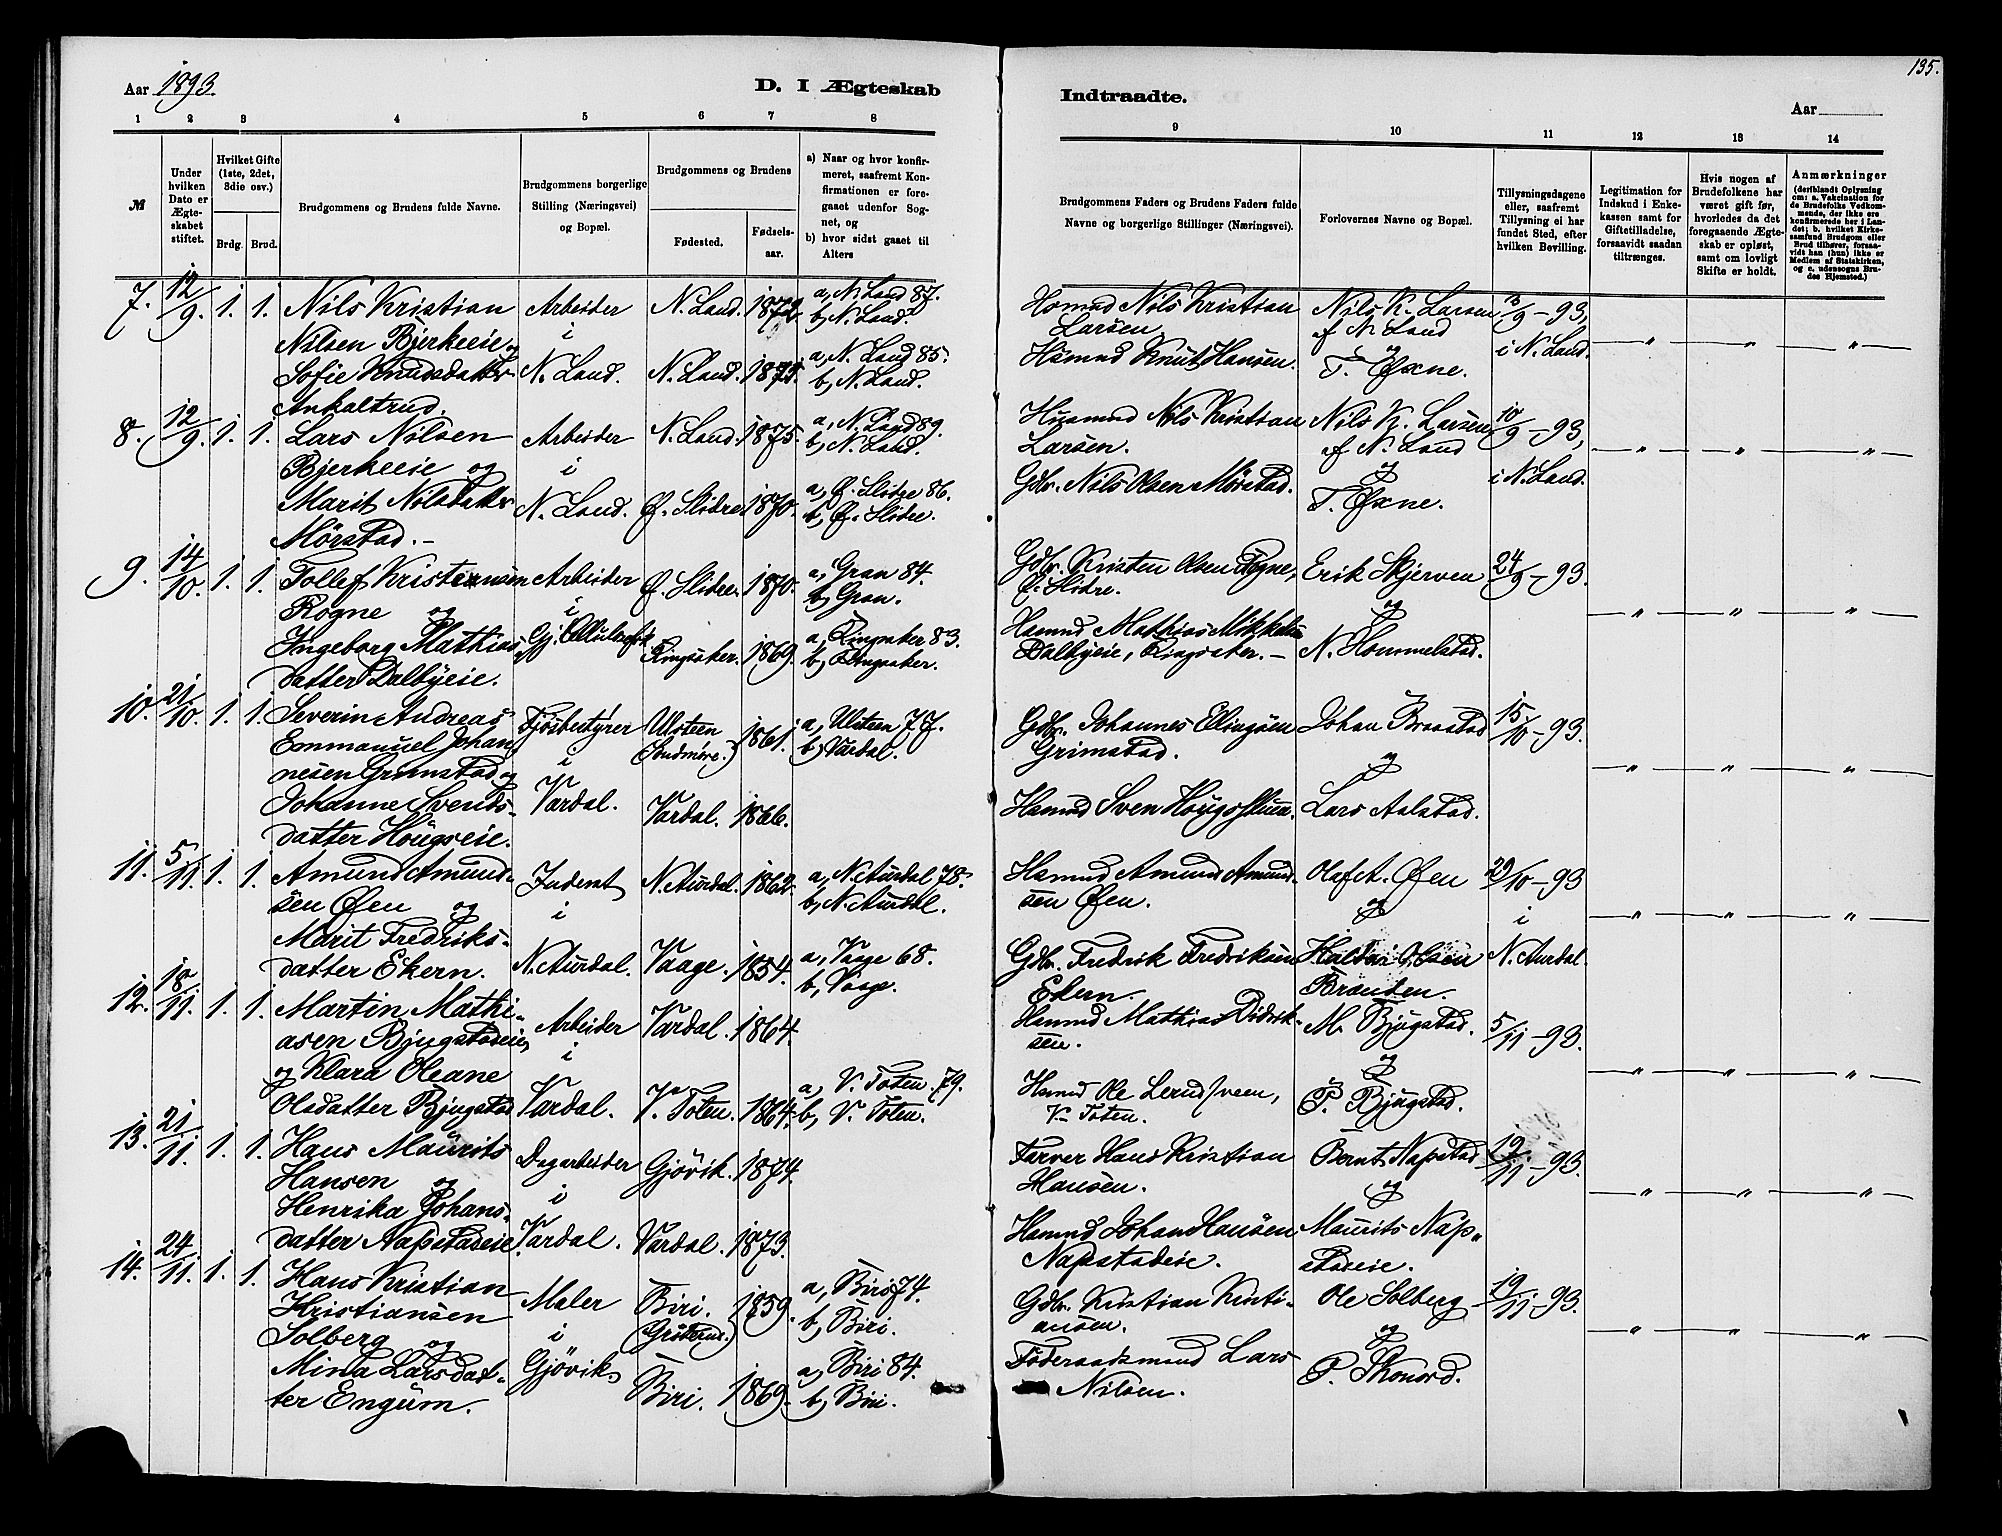 Aar 1893.
D. I Ægteskab
Indtraadte.
Aar
135.
1 2 3 4 5 6 7 8 9 10 11 12 13 14
№
Under hvilken Dato er Ægteskabet stiftet.
Hvilket Gifte (1ste, 2det, 3die osv.)
Brdg. Brud.
Brudgommens og Brudens fulde Navne.
Brudgommens borgerlige Stilling (Næringsvei) og Bopæl.
Brudgommens og Brudens
Fødested.
Fødselsaar.
a) Naar og hvor konfirmeret, saafremt Konfirmationen er foregaaet udenfor Sognet, og
b) hvor sidst gaaet til Alters
Brudgommens Faders og Brudens Faders fulde Navne og borgerlige Stillinger (Næringsvei).
Forlovernes Navne og Bopæl.
Tillysningsdagene eller, saafremt Tillysning ei har fundet Sted, efter hvilken Bevilling.
Legitimation for Indskud i Enkekassen samt for Giftetilladelse, forsaavidt saadan tiltrænges.
Hvis nogen af Brudefolkene har været gift før, hvorledes da det foregaaende Ægteskab er opløst, samt om lovligt Skifte er holdt.
Anmærkninger (deriblandt Oplysning om: a. Vakcination for de Brudefolks Vedkommende, der ikke ere konfirmerede her i Landet; b. hvilket Kirkesamfund Brudgom eller Brud tilhører, forsaavidt han (hun) ikke er Medlem af Statskirken, og c. udensogns Brudes Hjemsted.)
7. 12/9. 1. 1. Nils Kristian Nilsen Bjerkeeie og Sofie Knudsdatter Ankaltrud.
Arbeider i N. Land.
N. Land. 1872 a, N. Land 87. b, N. Land.
N. Land. 1871. a, N. Land 85. b, N. Land.
Hsmnd Nils Kristian Larsen
Hsmnd Knut Hansen.
Nils K. Larsen af N. Land og T. Øxne.
/9 - 93, i N. Land.
" " "
8. 12/9. 1. 1. Lars Nilsen Bjerkeeie og Marit Nilsdatter Mørstad. -
Arbeider i N. Land.
N. Land. 1875. a, N. Land 89. b, N. Land.
Ø. Slidre. 1870. a, Ø. Slidre 86. b, Ø. Slidre.
Husmand Nils Kristian Larsen.
Gdbr. Nils Olsen Mørstad.
Nils K. Larsen af N. Land og T. Øxne.
10/9 - 93, i N. Land.
" " "
9. 14/10. 1. 1. Tollef Kristensen Rogne og Ingeborg Mathiasdatter Dalbyeie.
Arbeider i Gj.
Ø. Slidre. 1870. a, Gran 84. b, Gran.
Ringsaker. 1869. a, Ringsaker 83. b, Ringsaker.
Gdbr. Kristen Olsen Rogne, Ø. Slidre.
Hsmnd Mathias Mikkelsen Dalbyeie, Ringsaker. -
Erik Skjerven og N. Hommelstad.
24/9 - 93.
" " "
10. 21/10. 1. 1. Severin Andreas Emmanuel Johannesen Grimstad og Johanne Svendsdatter Hougseie.
Fjøsbestyrer i Vardal.
Ulsteen (Søndmøre.) 1861. a, Ulsteen 77. b, Vardal.
Vardal. 1866.
Gdbr. Johannes Ellingsen Grimstad.
Hsmnd Sven
Johan Braastad og Lars Aalstad.
15/10 - 93.
" " "
11. 5/11. 1. 1. Amund Amundsen Øen og Marit Fredriksdatter Ekern.
Inderst i N. Aurdal.
N. Aurdal. 1862. a, N. Aurdal 78. b, N. Aurdal.
Vaage. 1854. a, Vaage 68. b, Vaage.
Hsmnd Amund Amundsen Øen.
Gdbr. Fredrik Fredriksen Ekern.
Olaf A. Øen og Haldor Olsen Brænden.
29/10 - 93 i N. Aurdal.
" " "
12. 18/11. 1. 1. Martin Mathiasen Bjugstadeie, og Klara Oleane Olsdatter Bjugstad
Arbeider i Vardal.
Vardal. 1864.
V. Toten. 1864. a, V. Toten. 79. b, V. Toten.
Hsmnd Mathias Didriksen.
Hsmnd Ole Lerudsveen, V. Toten.
M. Bjugstad. og P. Bjugstad.
5/11 - 93.
" " "
13. 21/11. 1. 1. Hans Maurits Hansen og Henrika Johansdatter Napstadeie.
Dagarbeider i Vardal.
Gjövik. 1874.
Vardal. 1873.
Farver Hans Kristian Hansen.
Hsmnd Johan Hansen Napstadeie.
Bernt Napstad og Maurits Napstadeie.
19/11 - 93.
" " "
14. 24/11. 1. 1. Hans Kristian Kristiansen Solberg og Mina Larsdatter Engum.
Maler i Gjövik.
Biri. 1859. a, Biri 74. b, Biri.
Biri. 1869. a, Biri 84. b, Biri.
Gdbr. Kristian Kristiansen.
Föderaadsmand Lars Nilsen.
Ole Solberg og P. Skonord.
19/11 - 93.
" " "